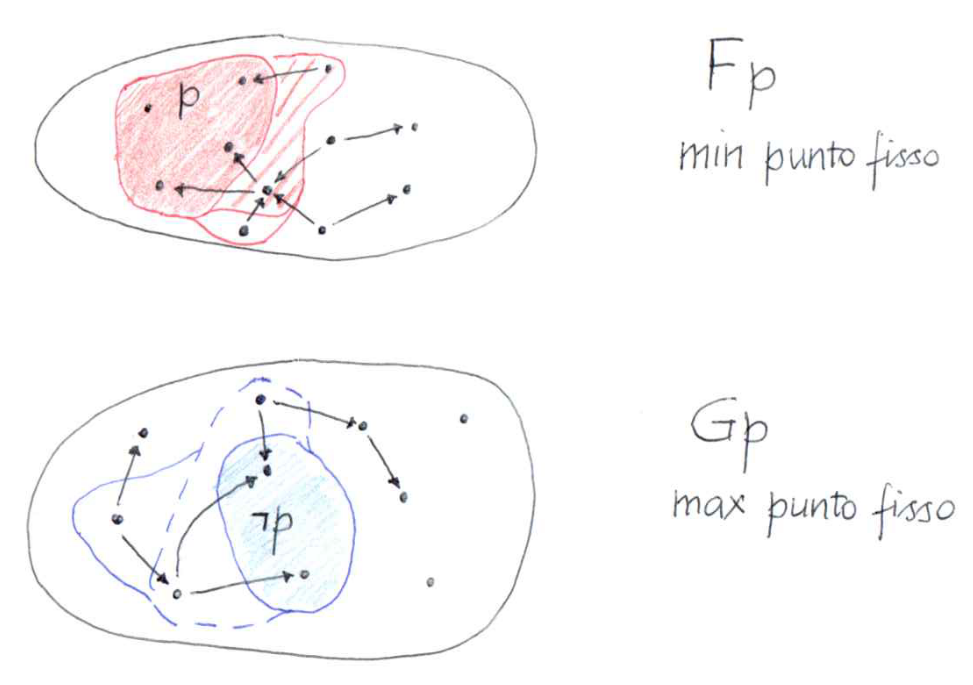 p
Fp
min punto fisso
¬p
Gp
max punto fisso